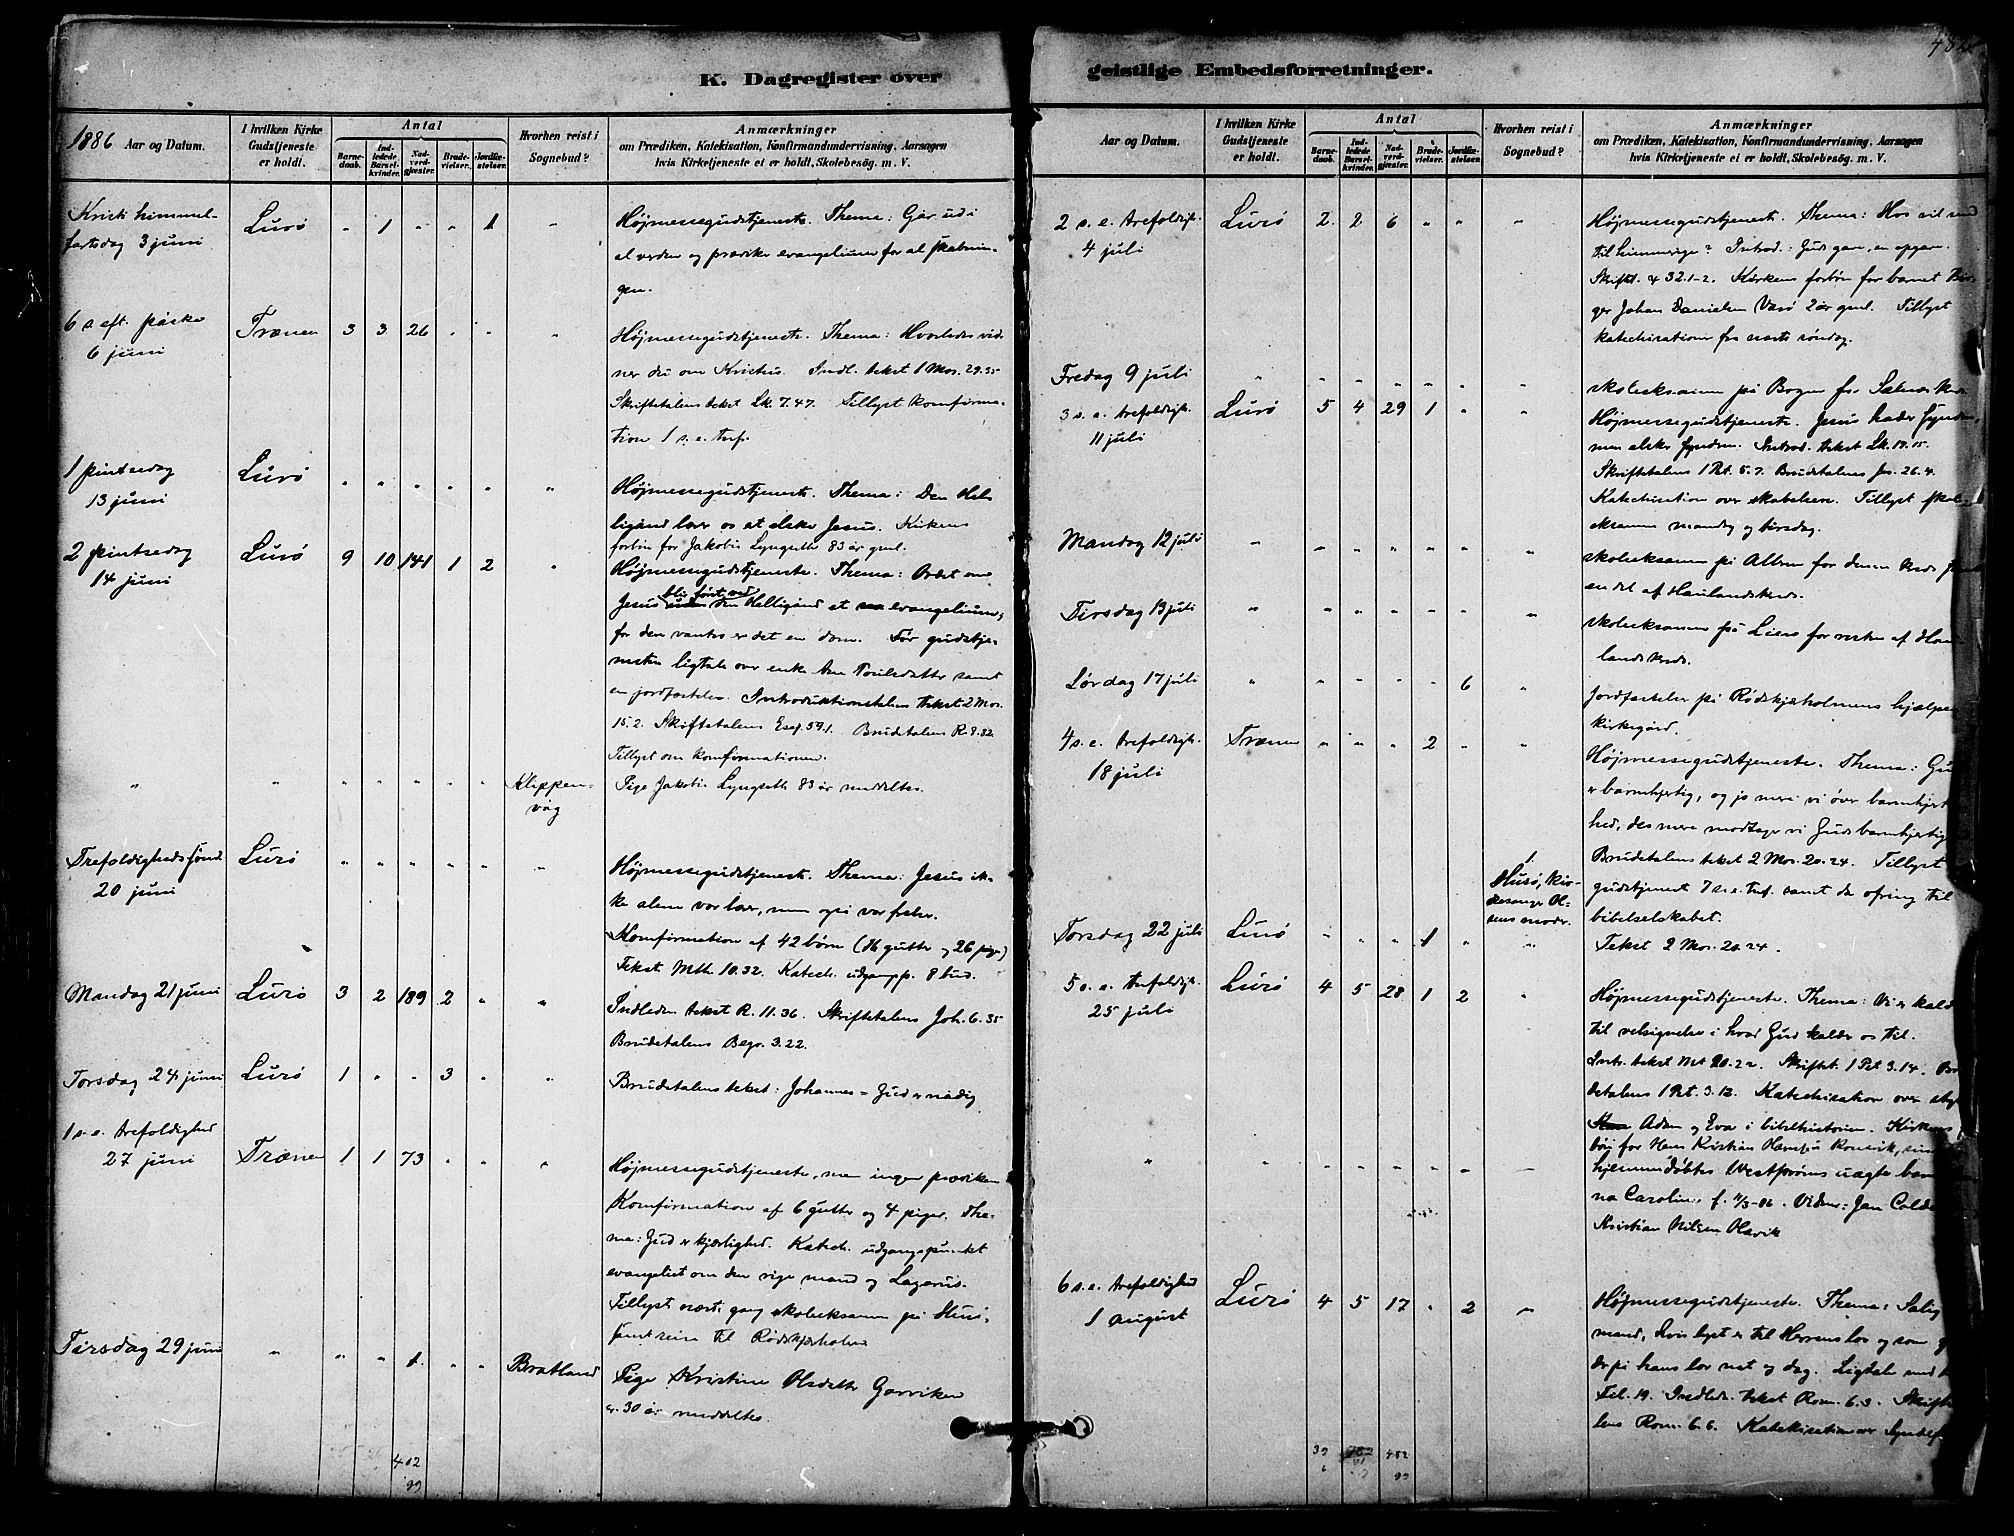 K. Dagregister over
1886 Aar og Datum.
I hvilken Kirke Gudstjeneste er holdt.
Antal
Barnedaab.
Indledede Barselkvinder.
Nadverdgjæster.
Brudevielser.
Jordfæstelser.
Hvorhen reist i Sognebud?
Anmærkninger
om Prædiken, Katekisation, Konfirmandundervisning, Aarsagen
hvis Kirketjeneste ei er holdt, Skolebesøg. m. V.
Kristi himmel- Lurø " 1 " " 1 " Højmessegudstjeneste. Thema: Går ud i
fartsdag 3 juni al verden og prædiker evangelium for al skabnin-
gen.
6 s. eft. påske Trænen 3 3 26 " " "
6 juni Højmessegudstjeneste. Thema: Hvorledes vid-
ner du om Kristus. Indl. tekst 1 Mos. 29.35
Skriftetalens tekst Lk. 7.47. Tillyst konfirma-
tion 1 s. e. tref.
1 pintsedag Lurø " " " " " "
13 juni Højmessegudstjeneste. Thema: Den Hel-
ligånd lærer os at elske Jesus. Kirkens
forbøn for Jakobie Lyngseth 83 år gml.
2 pintsedag Lurø 9 10 141 1 2 " Højmessegudstjeneste. Thema: Ordet om
14 juni Jesus blir først ved den Helligånd et evangelium,
for den vantro er det en dom. Før gudstje-
nesten ligtale over enke samt
en jordfæstelse. Introduktionstalens tekst 2 Mos.
15.2. Skriftetalens Esaj. 59.1. Brudetalens R. 8.32
Tillyst om konfirmationen.
" " " " " " " Klippen- Pige Jakobie Lyngseth 83 år meddeltes.
våg
Trefoldigheds sønd. Lurø " " " " " "
20 juni Højmessegudstjeneste. Thema: Jesus ik-
ke alene vor lærer, men også vor frelser.
Konfirmation af 42 børn (16 gutter og 26 piger)
Tekst Mth. 10.32. Katech. udgangsp. 8 bud.
Mandag 21 juni Lurø 3 2 189 2 " " Indleden tekst R. 11.36. Skriftetalens Joh. 6.35
Brudetalens Bego. 3.22.
Torsdag 24 juni Lurø 1 " " 3 " " Brudetalens tekst: Johannes = Gud er nådig
1 s. e. trefoldighed
27 juni Trænen 1 1 73 " " " Højmessegudstjeneste, men ingen prædiken
Konfirmation af 6 gutter og 4 piger. The-
ma: Gud er kjærlighed. Katech. udgangspunktet
evangeliet om den rige mand og Lazarus.
Tillyst næste gang skoleeksamen på Husø,
samt reise til Rødskjærholmen
Tirsdag 29 juni " " " 1. " " Bratland Pige Kristine Olsdatter Garviken
30 år meddeltes.
402
99
geistlige Embedsforretninger.
Aar og Datum.
I hvilken Kirke Gudstjeneste er holdt.
Antal
Barnedaab.
Indledede Barselkvinder.
Nadverdgjæster.
Brudevielser.
Jordfæstelser.
Hvorhen reist i Sognebud?
Anmærkninger
om Prædiken, Katekisation, Konfirmandundervisning, Aarsagen
hvis Kirketjeneste ei er holdt, Skolebesøg. m. V.
2 s. e. trefoldigh. Lurø 2 2 6 " " " Højmessegudstjeneste. Thema: Hvo vil ind
4 juli til himmerige? Introd.: Guds gave, en opgave.
Skriftet. 32.1-2. Kirkens forbøn for barnet Bir-
ger Johan Danielsen Varø 2 år gml. Tillyst
katechisation fra næste søndag.
Fredag 9 juli " " " " " " " skoleeksamen på Bogen for
3 s. e. trefoldigh. Lurø 5 4 29 1 " " Højmessegudstjeneste. Jesus hader synden,
11 juli men elsker synderen. Introd. tekst Lk. 19.15.
Skriftetalens 1 Pet. 5.7. Brudetalens Jes. 26.4.
Katechisation over skabelsen. Tillyst skole-
eksamen mandag og tirsdag.
Mandag 12 juli " " " " " " " skoleeksamen på Alderen for denne kreds
en del af Haulandskreds.
Tirsdag 13 juli " " " " " " " skoleeksamen på for resten af Hau-
landskreds.
Lørdag 17 juli " " " " " 6 " Jordfæstelse på Rødskjærholmens hjælpe-
kirkegård.
4 s. e. trefoldigh. Trænen " " " 2 " "
18 juli Højmessegudstjeneste. Thema: Gud
er barmhjertig, og jo mere vi øver barmhjert
hed, des mere modtager vi Guds barmhjertig
Brudetalens tekst 2 Mos. 20.24. Tillyst
1. Husø, kir- gudstjeneste 7 s. e. tref. samt da ofring til
kesanger Ol- bibelselskabet.
sens moder.
Torsdag 22 juli Lurø " " " 1 " " Tekst 2 Mos. 20.24.
5 s. e. trefoldigh. Lurø 4 5 28 1 2 " Højmessegudstjeneste. Thema: Vi er kald
25 juli til velsignelse i hvad Gud kalder os til.
Intr. tekst Mt 20.22. Skriftet. 1 Pet 3.14. Bru
detalens 1 Pet. 3.12. Katechisation over
Adam og Eva i bibelhistorien. Kirkens
bøn for Hans Kristian Hansen
" " " " " " " " hjemmedøbtes Westpröms uægte barn
na Caroline f. 11/3-86. Vidner: Jan
Kristian Nilsen Olsvik
6 s. e. trefoldighed Lurø 4 5 17 " 2 " Højmessegudstjeneste. Thema: Salig
1 august mand, hvis lyst er til Herrens lov og som
der på hans lov nat og dag. Ligtale
Fil. 19. Indlede tekst Rom. 6.3. Skrifte
lens Rom. 6.6. Katekisation over Syndef
39 482 482
99